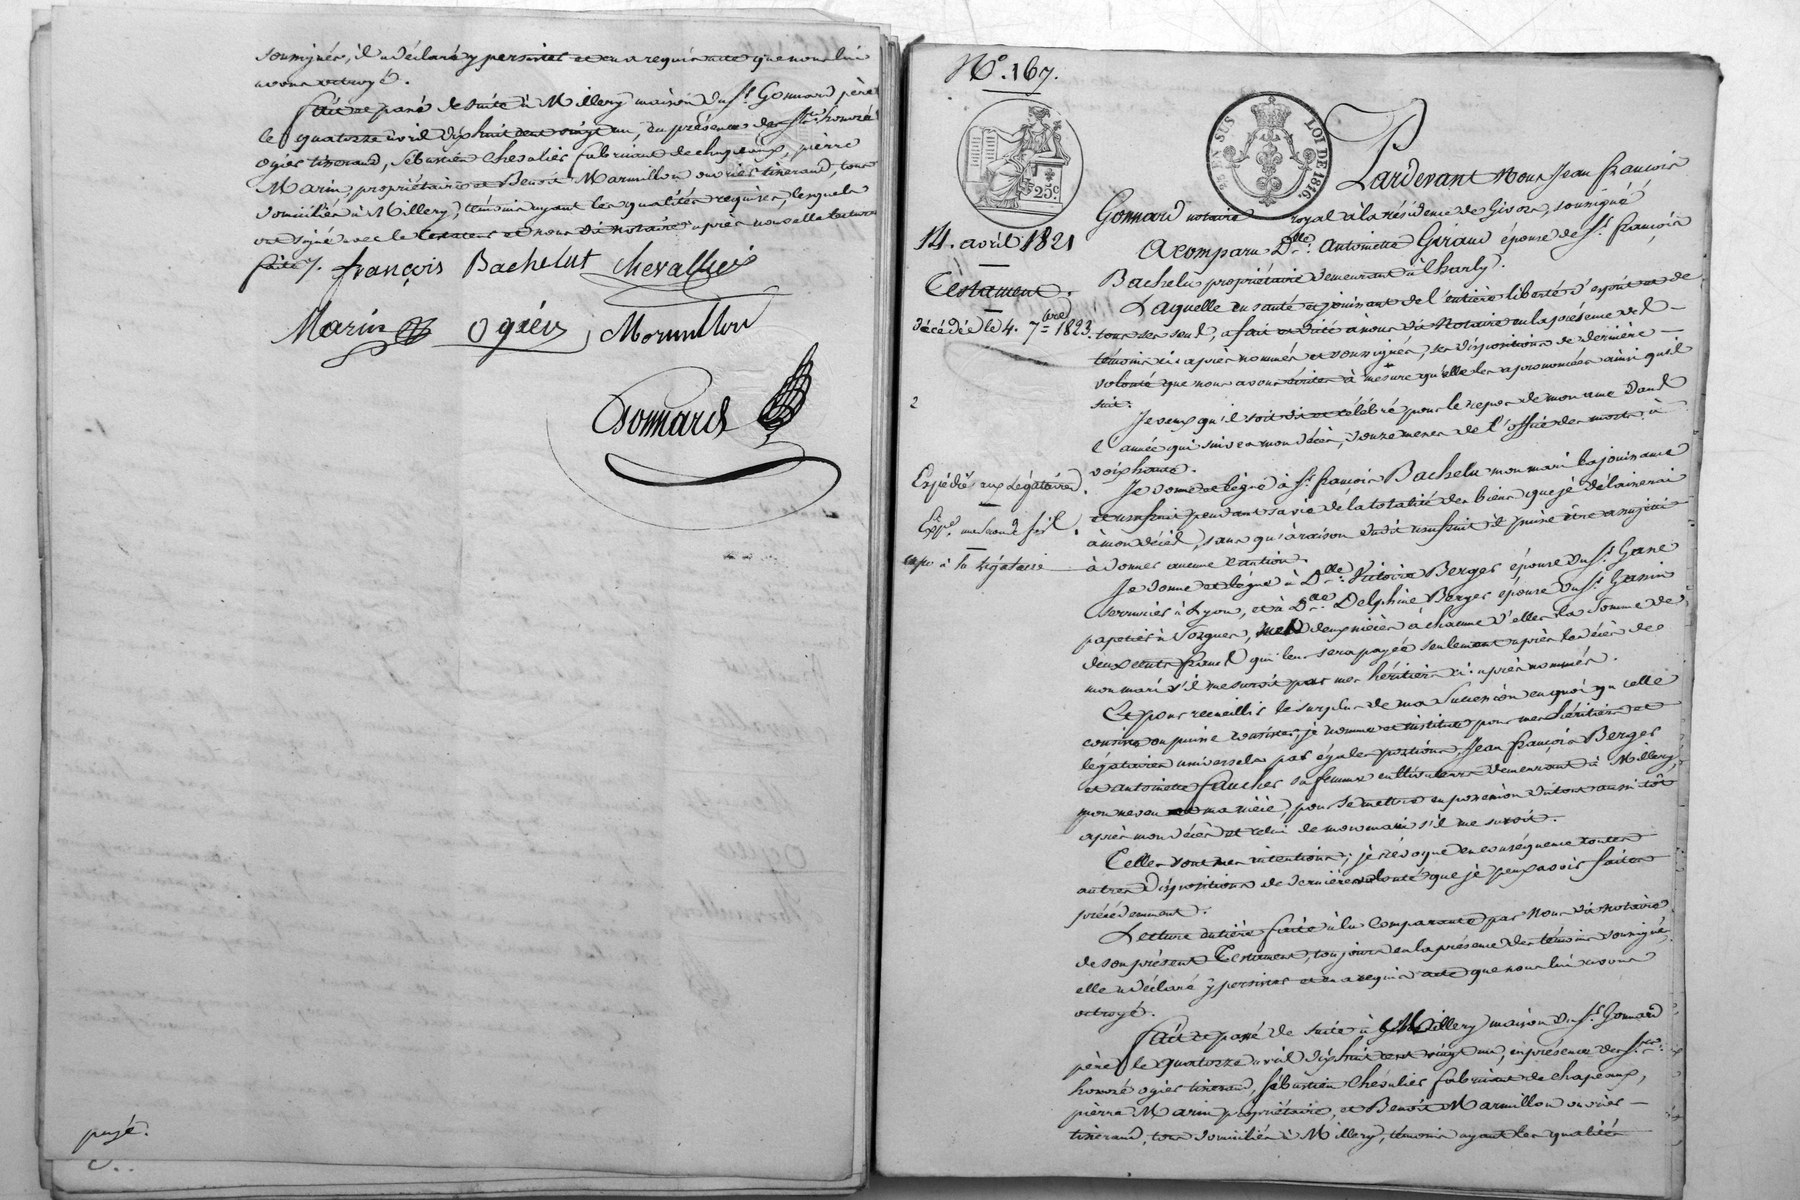 soussignés, il a déclaré y persister et en a requis acte que nous lui
avons octroyé.
fait et passé de suite à Millery maison du Sr. Gonnard père
le quatorze avril dix huit cent vingt un, en présence de Srs. honoré
ogier tisserand, Sébastien Chevalier fabricant de chapeaux, pierre
Marin, propriétaire et Benoit Marmillon ouvrier tisserand, tous
domiciliés à Millery, témoins ayant les qualités requises, lesquels
ont signé avec le testateur et nous dit notaire après nouvelle lecture
faite /.
françois Bachelut Chevallier
Marin Ogier Mormillon
Gonnard
payé.
No. 167.
25c.
EN SUS
LOI DE 1816.
14. avril 1821
Testament.
décédée le 4. 7bre 1823.
2
Expédié aux Légataires.
à la Légataire
Pardevant Nous Jean françois
Gonnard notaire royal à la résidence de Givors, soussigné
A comparu Dlle. Antoinette Giraud épouse de Sr. françois
Bachelu propriétaire demeurant à Charly.
Laquelle en santé et jouissant de l'entière liberté d'esprit et de
tous ses sens, a fait et dicté à nous dit Notaire en la présence des
témoins ci après nommés et soussignés, ses dispositions de dernière
volonté que nous avons écrites à mesure qu'elle les a prononcées ainsi qu'il
suit:
Je veux qu'il soit dit et célébré pour le repos de mon ame dans
l'année qui suivra mon décès, douze messes de l'office des morts à
voix haute.
Je donne et lègue à Sr. françois Bachelu mon mari la jouissance
et usufruit pendant sa vie de la totalité des biens que je délaisserai
à mon décès, sans qu'à raison dudit usufruit il puisse être assujetti
à donner aucune caution.
Je donne et lègue à Dlle. Victoire Berger épouse du Sr. Gane
serrurier à Lyon, et à Dlle. Delphine Berger épouse du Sr. Gassin
papetier à Sorgues, mes deux nièces à chacune d'elles la somme de
deux cents francs qui leur sera payée seulement après le décès de
mon mari s'il me survit par mes héritiers ci après nommés.
Et pour recueillir le surplus de ma succession en quoi qu'elle
consiste ou puisse consister, je nomme et institue pour mes héritiers et
légataires universels par égales portions, Jean françois Berger
et antoinette faucher sa femme cultivateurs demeurant à Millery,
mon neveu et ma nièce, pour se mettre en possession du tout aussitôt
après mon décès et celui de mon mari s'il me survit.
Telles sont mes intentions; je révoque en conséquence toutes
autres dispositions de dernière volonté que je peux avoir faites
précédemment.
Lecture entière faite à la Comparante par Nous dit notaire
de son présent Testament, toujours en la présence des témoins soussignés,
elle a déclaré y persister et en a requis acte que nous lui avons
octroyé.
fait et passé de suite à Millery maison du Sr. Gonnard
père le quatorze avril dix huit cent vingt un, en présence des Srs.
honoré ogier tisserand, Sébastien Chevalier fabricant de chapeaux,
pierre Marin propriétaire, et Benoit Marmillon ouvrier
tisserand, tous domiciliés à Millery, témoins ayant les qualités